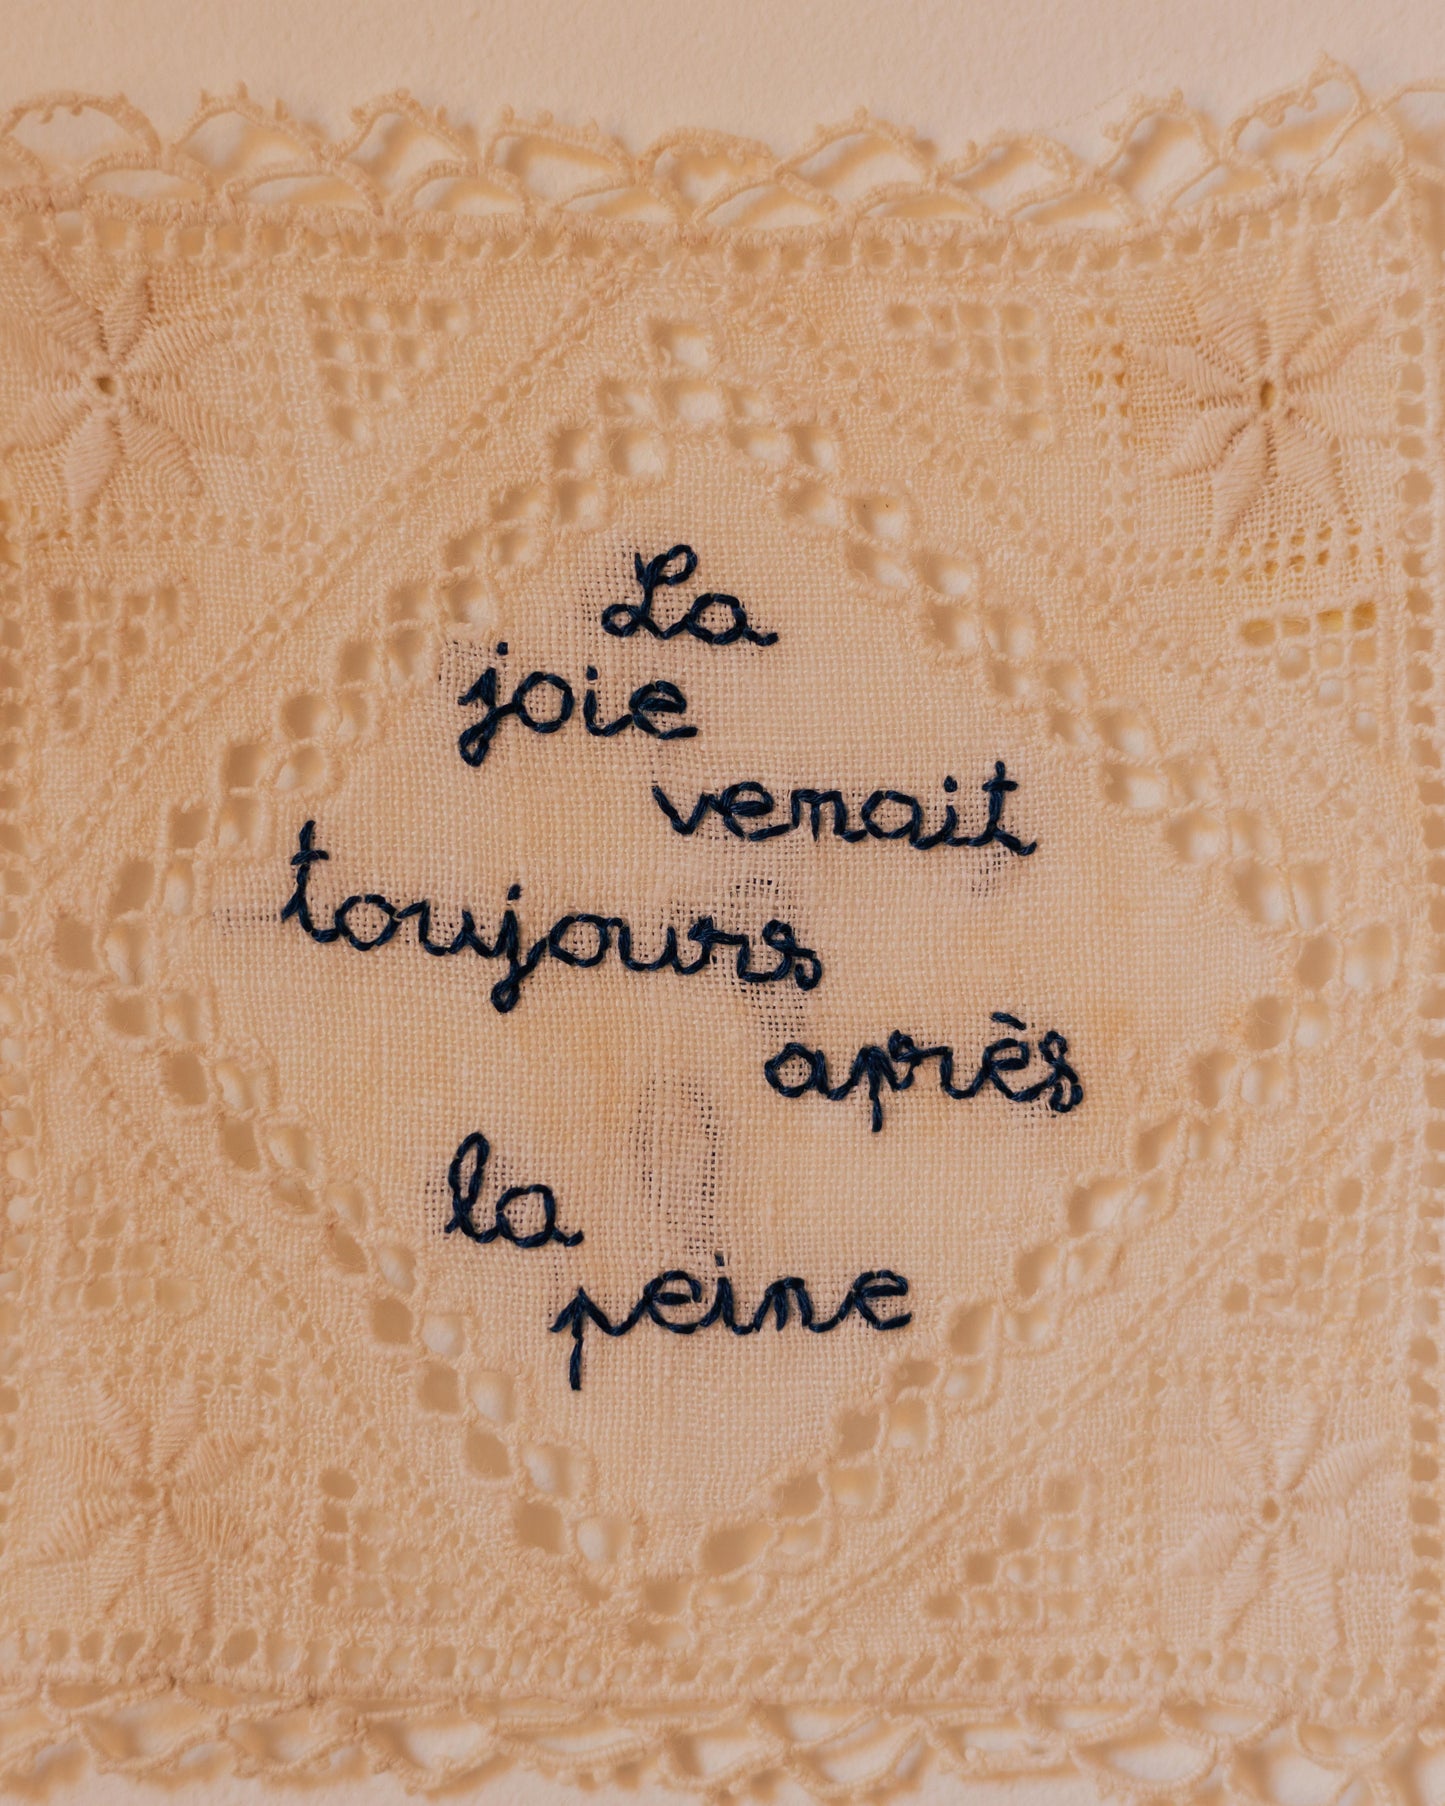 La
joie
venait
toujours
après
la
peine